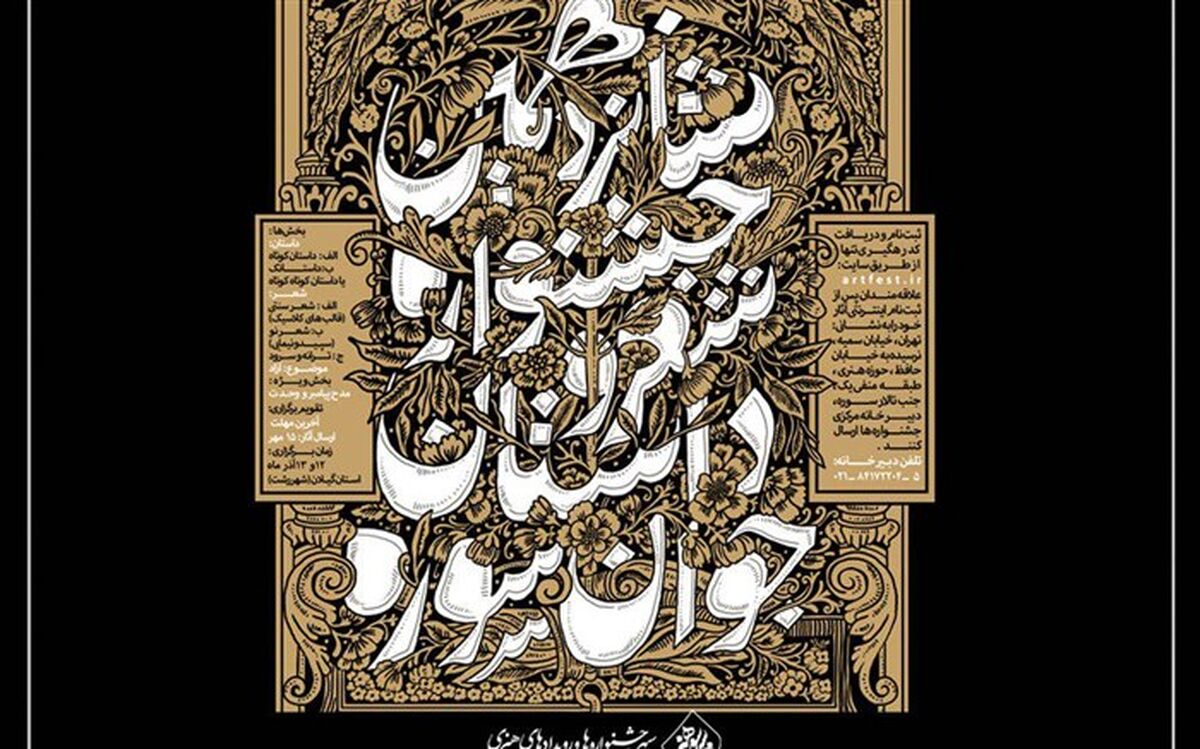 شانزدهمین
جشنواره
شعر و
داستان
جوان سوره
ثبت‌نام و دریافت
کد رهگیری تنها
از طریق سایت:
artfest.ir
علاقه‌مندان پس از
ثبت‌نام اینترنتی آثار
خود را به نشانی:
تهران، خیابان سمیه،
نرسیده به خیابان
حافظ، حوزه هنری،
طبقه منفی یک،
جنب تالار سوره،
دبیرخانه مرکزی
جشنواره‌ها ارسال
کنند.
تلفن دبیرخانه:
۰۲۱-۸۴۱۷۲۲۰۴-۵
بخش‌ها:
داستان:
الف: داستان کوتاه
ب: داستانک
یا داستان کوتاه کوتاه
شعر:
الف: شعر سنتی
(قالب‌های کلاسیک)
ب: شعر نو
(سپید و نیمایی)
ج: ترانه و سرود
موضوع: آزاد
بخش ویژه:
مدح پیامبر و وحدت
تقویم برگزاری:
آخرین مهلت
ارسال آثار: ۱۵ مهر
زمان برگزاری:
۱۲ و ۱۳ آذر ماه
استان گیلان (شهر رشت)
جشنواره‌ها و رویدادهای هنری